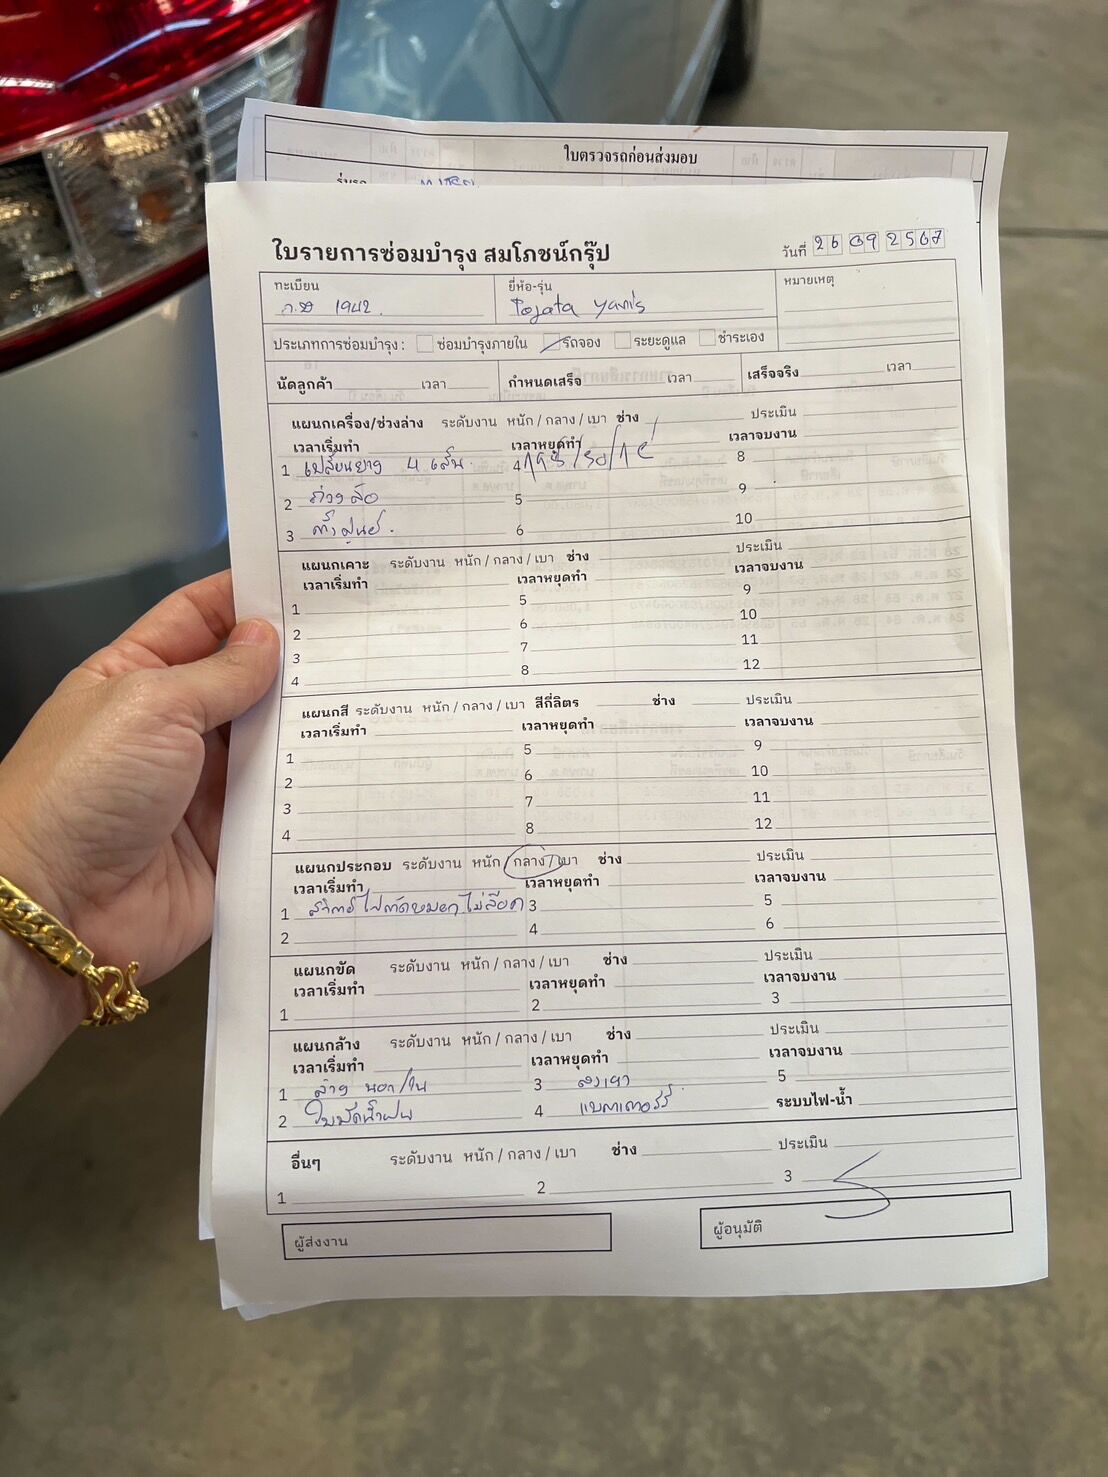 ใบตรวจรถก่อนส่งมอบ
ใบรายการซ่อมบำรุง สมโภชน์กรุ๊ป
วันที่ 26 09 2567
ทะเบียน ยี่ห้อ-รุ่น หมายเหตุ
1942 Toyata yaris
ประเภทการซ่อมบำรุง : ซ่อมบำรุงภายใน รถจอง ระยะดูแล ชำระเอง
นัดลูกค้า เวลา กำหนดเสร็จ เวลา เสร็จจริง เวลา
แผนกเครื่อง/ช่วงล่าง ระดับงาน หนัก / กลาง / เบา ช่าง ประเมิน
เวลาเริ่มทำ เวลาหยุดทำ เวลาจบงาน
1 เปลี่ยนยาง 4 เส้น 4 8
2 ถ่วงล้อ 5 9
3 ตั้งศูนย์ 6 10
แผนกเคาะ ระดับงาน หนัก / กลาง / เบา ช่าง ประเมิน
เวลาเริ่มทำ เวลาหยุดทำ เวลาจบงาน
1 5 9
2 6 10
3 7 11
4 8 12
แผนกสี ระดับงาน หนัก / กลาง / เบา สีกี่ลิตร ช่าง ประเมิน
เวลาเริ่มทำ เวลาหยุดทำ เวลาจบงาน
1 5 9
2 6 10
3 7 11
4 8 12
แผนกประกอบ ระดับงาน หนัก / กลาง / เบา ช่าง ประเมิน
เวลาเริ่มทำ เวลาหยุดทำ เวลาจบงาน
1 สวิตซ์ไฟตัดหมอกไม่ล๊อค 3 5
2 4 6
แผนกขัด ระดับงาน หนัก / กลาง / เบา ช่าง ประเมิน
เวลาเริ่มทำ เวลาหยุดทำ เวลาจบงาน
1 2 3
แผนกล้าง ระดับงาน หนัก / กลาง / เบา ช่าง ประเมิน
เวลาเริ่มทำ เวลาหยุดทำ เวลาจบงาน
1 ล้าง นอก/ใน 3 ลงเงา 5
2 ใบปัดน้ำฝน 4 แบตเตอรี่ ระบบไฟ-น้ำ
อื่นๆ ระดับงาน หนัก / กลาง / เบา ช่าง ประเมิน
1 2 3
ผู้ส่งงาน ผู้อนุมัติ